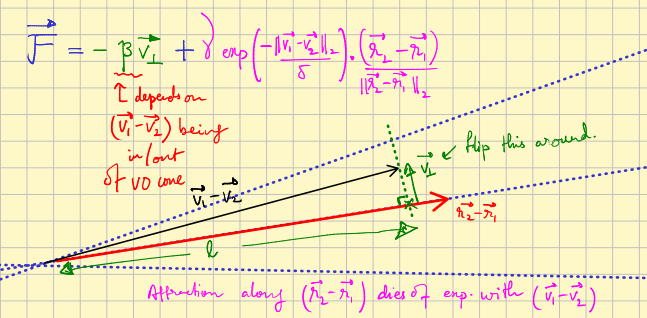 F⃗ = - β v⃗⊥ + γ exp(-‖v⃗₁-v⃗₂‖₂ / δ) · (r⃗₂ - r⃗₁) / ‖r⃗₂-r⃗₁‖₂
depends on
(v⃗₁-v⃗₂) being
in/out
of VO cone
v⃗⊥
flip this around.
v⃗₁-v⃗₂
r⃗₂-r⃗₁
l
Attraction along (r⃗₂-r⃗₁) dies of exp. with (v⃗₁-v⃗₂)